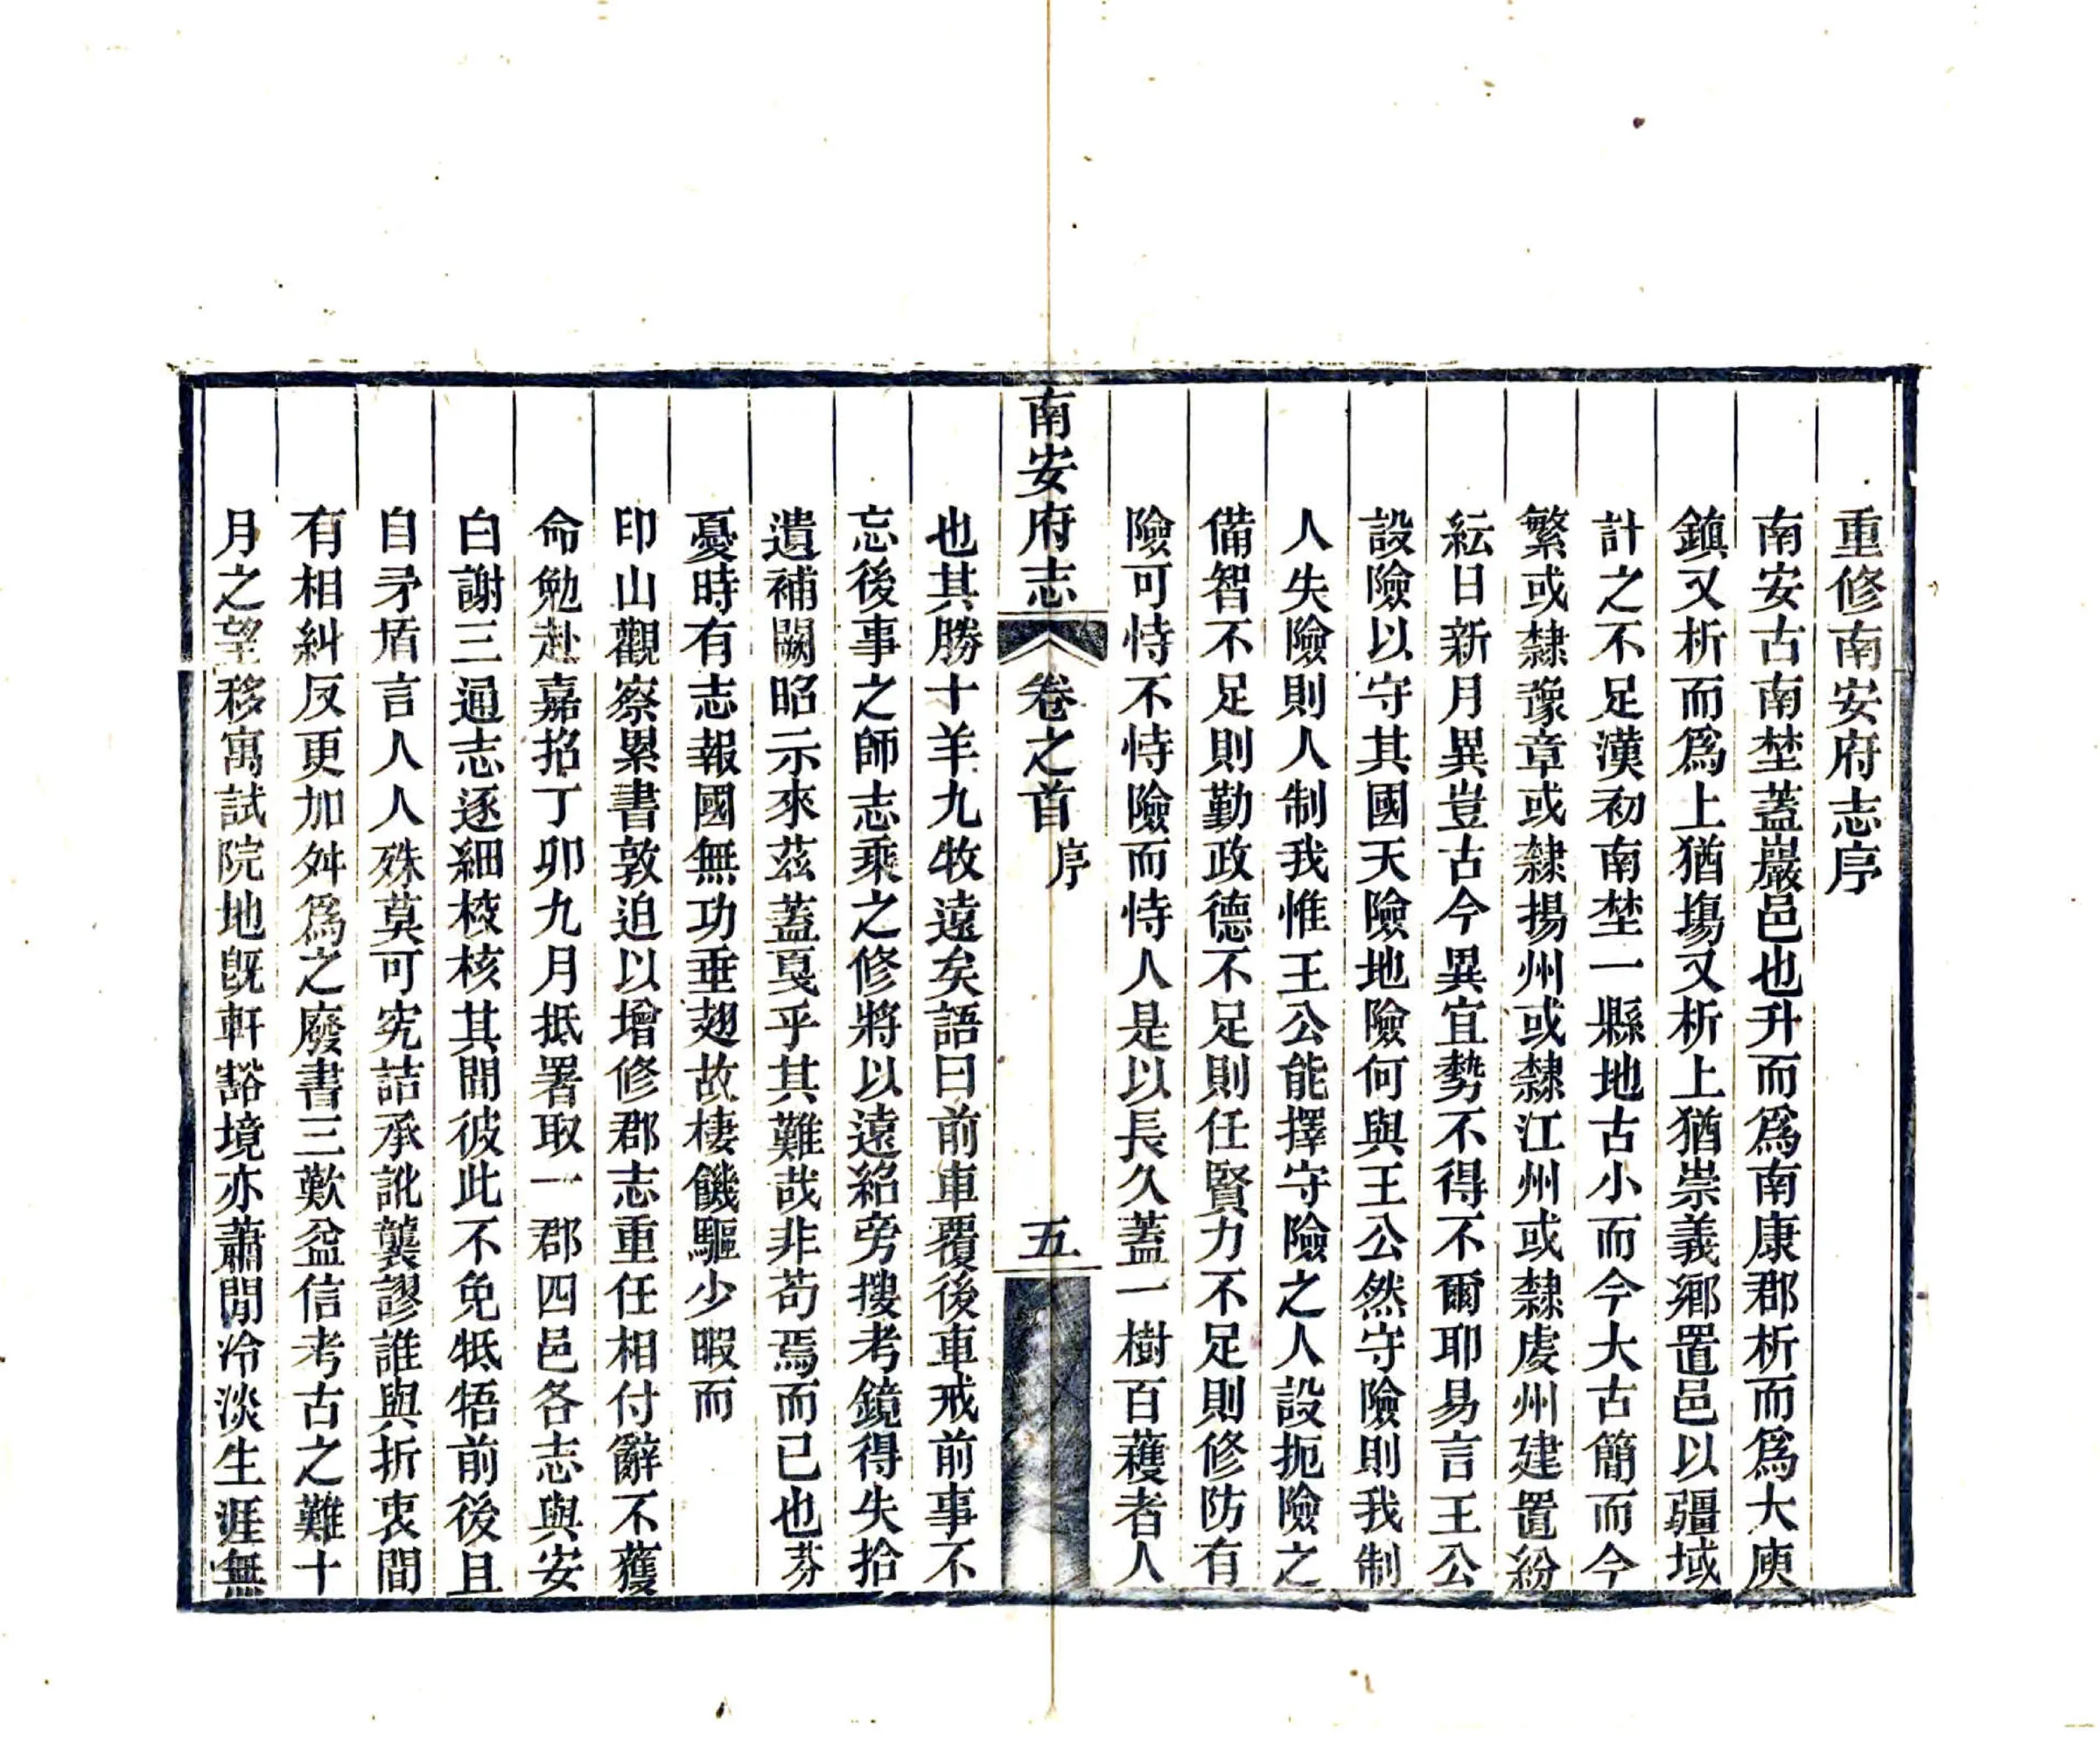 重修南安府志序
南安古南埜蓋巖邑也升而爲南康郡析而爲大庾
鎮又析而爲上猶塲又析上猶崇義鄉置邑以疆域
計之不足漢初南埜一縣地古小而今大古簡而今
繁或隸豫章或隸揚州或隸江州或隸虔州建置紛
紜日新月異豈古今異宜勢不得不爾耶易言王公
設險以守其國天險地險何與王公然守險則我制
人失險則人制我惟王公能擇守險之人設扼險之
備智不足則勤政德不足則任賢力不足則修防有
險可恃不恃險而恃人是以長久蓋一樹百穫者人
南安府志 卷之首 序 五
也其勝十羊九牧遠矣語曰前車覆後車戒前事不
忘後事之師志乘之修將以遠紹旁搜考鏡得失拾
遺補闕昭示來茲蓋戛乎其難哉非苟焉而已也芬
憂時有志報國無功垂翅故棲饑驅少暇而
印山觀察累書敦迫以增修郡志重任相付辭不獲
命勉赴嘉招丁卯九月抵署取一郡四邑各志與安
白謝三通志逐細校核其間彼此不免牴牾前後且
自矛盾言人人殊莫可究詰承訛襲謬誰與折衷間
有相糾反更加舛爲之廢書三歎益信考古之難十
月之望移寓試院地旣軒豁境亦蕭閒冷淡生涯無